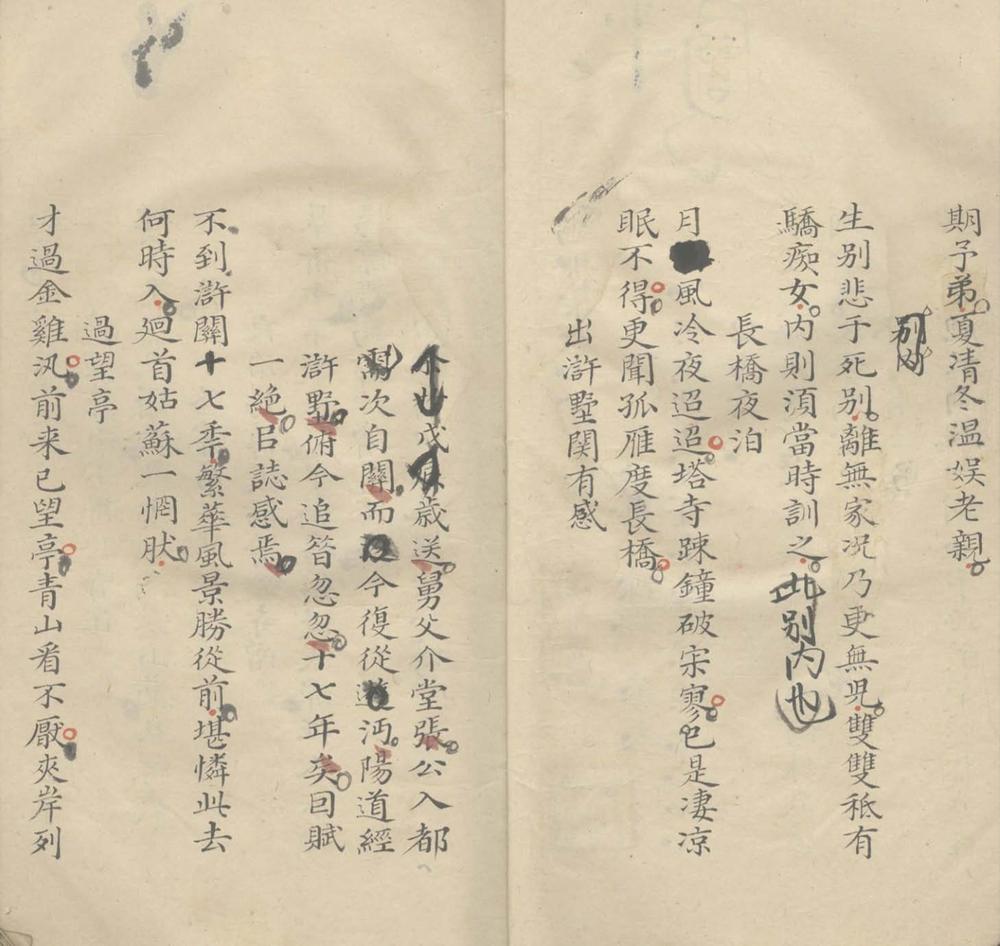 期予弟夏清冬温娱老親
别内
生别悲于死别離無家况乃更無児雙雙秪有
驕痴女内則湏當時訓之此别内也
長橋夜泊
月風冷夜迢迢塔寺踈鐘破宋寥已是凄凉
眠不得更聞孤雁度長橋
出滸墅関有感
戊歳送舅父介堂張公入都
需次自關而今復從沔陽道經
滸墅俯今追昔忽忽十七年矣囙賦
一絶㠯誌感焉
不到滸關十七季繁華風景勝從前堪憐此去
何時入廻首姑蘇一惘肰
過望亭
才過金雞汛前来已望亭青山看不厭夾岸列